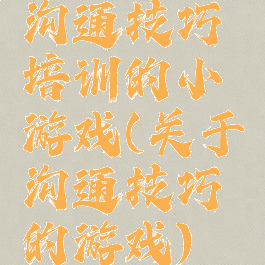 沟通技巧
培训的小
游戏(关于
沟通技巧
的游戏)